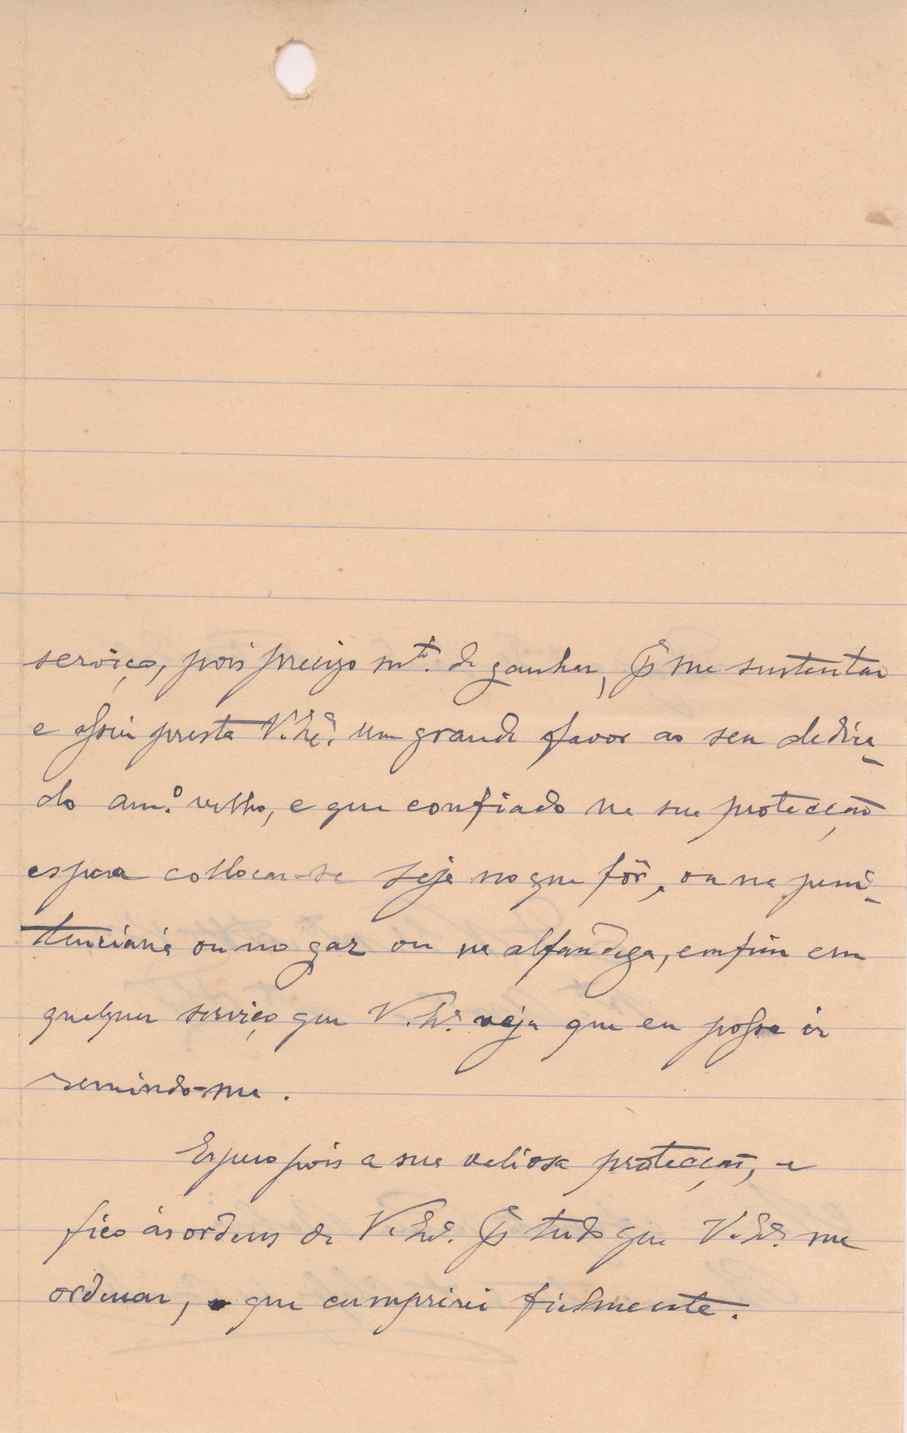 serviço, pois precizo mt.º de ganhar, pª me sustentar
e assim presta V. Exª. um grande favor ao seu dedica-
do am.º velho, e que confiado na sua protecção
espera collocar-se seja no que fôr, ou na peni-
tenciaria ou no gaz ou na alfandega, emfim em
qualquer serviço que V. Exª. veja que eu possa ir
remindo-me.
Espero pois a sua valiosa protecção, e
fico ás ordens de V. Exª. pª tudo que V. Exª. me
ordenar, que cumprirei fielmente.